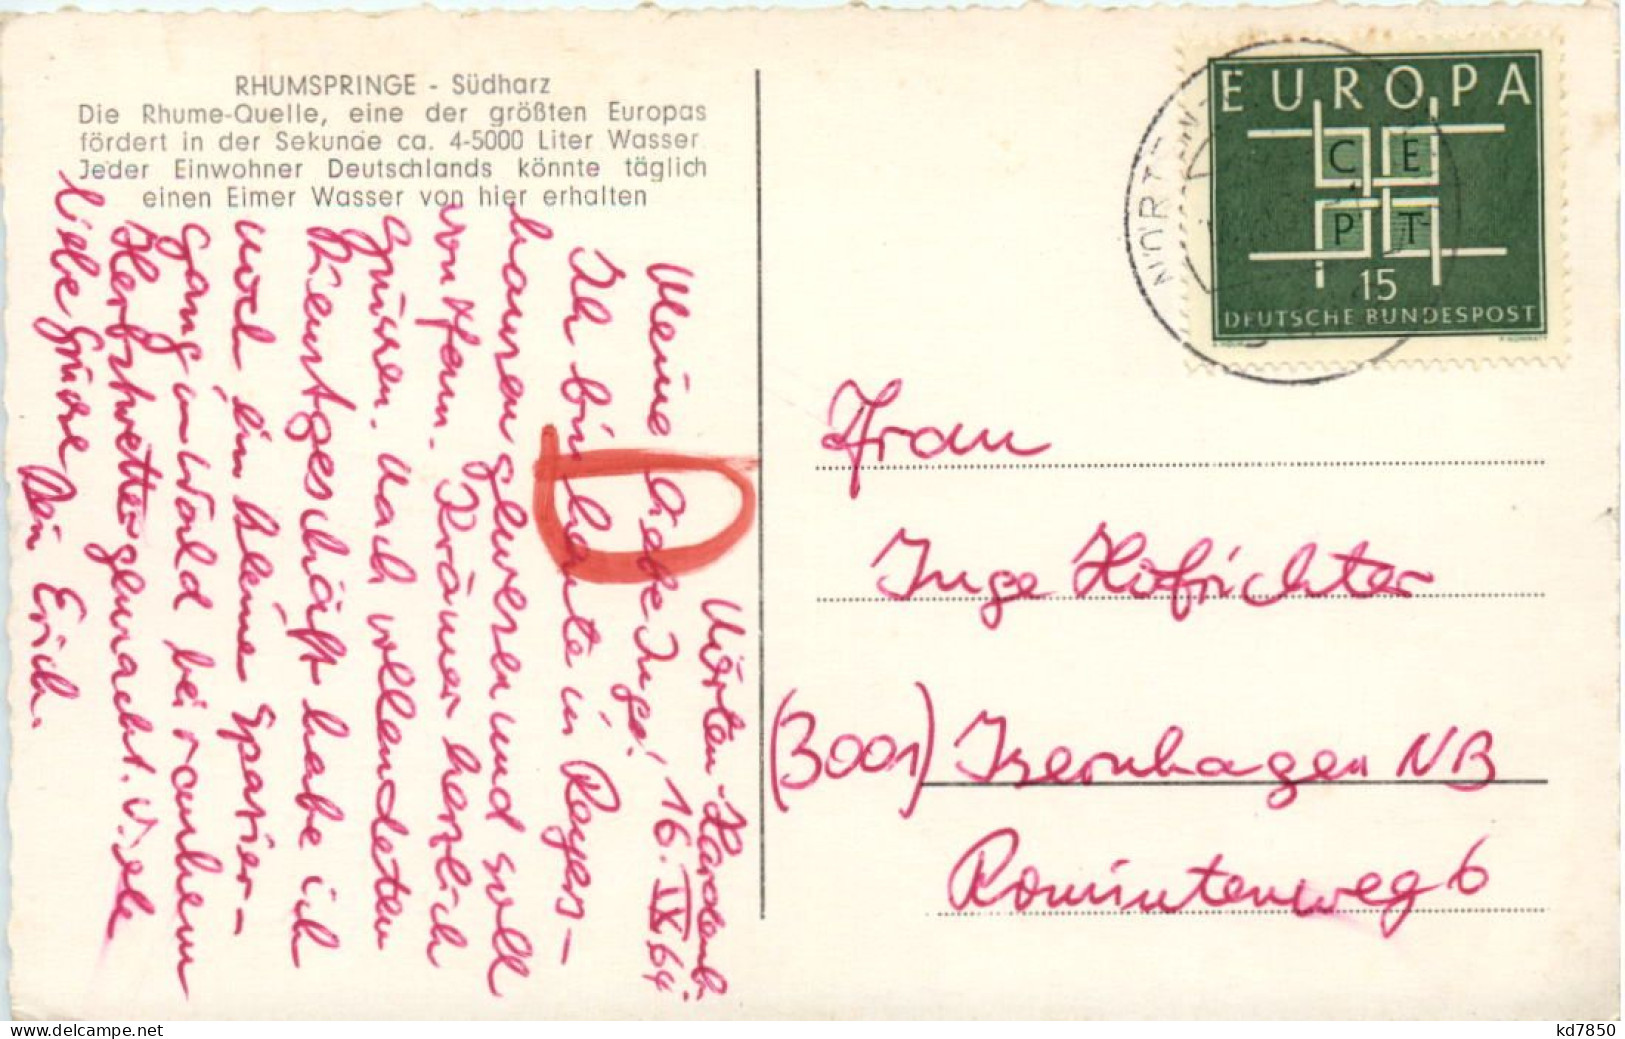 RHUMSPRINGE - Südharz
Die Rhume-Quelle, eine der größten Europas
fördert in der Sekunde ca. 4-5000 Liter Wasser
Jeder Einwohner Deutschlands könnte täglich
einen Eimer Wasser von hier erhalten
Nörten-Hardenb.
16. IX. 64.
Meine liebe Inge!
Ich bin heute in Reyers-
hausen gewesen und soll
von Fam. Krämer herzlich
grüssen. Nach vollendeten
Dienstgeschäft habe ich
noch ein kleine Spazier-
gang im Wald bei rauhem
Herbstwetter gemacht. Viele
liebe Grüsse Dein Erich.
D
EUROPA
C E
P T
15
DEUTSCHE BUNDESPOST
NÖRTEN-
Frau
Inge Hofrichter
(3001) Isernhagen NB
Rominterweg 6
www.delcampe.net
kd7850